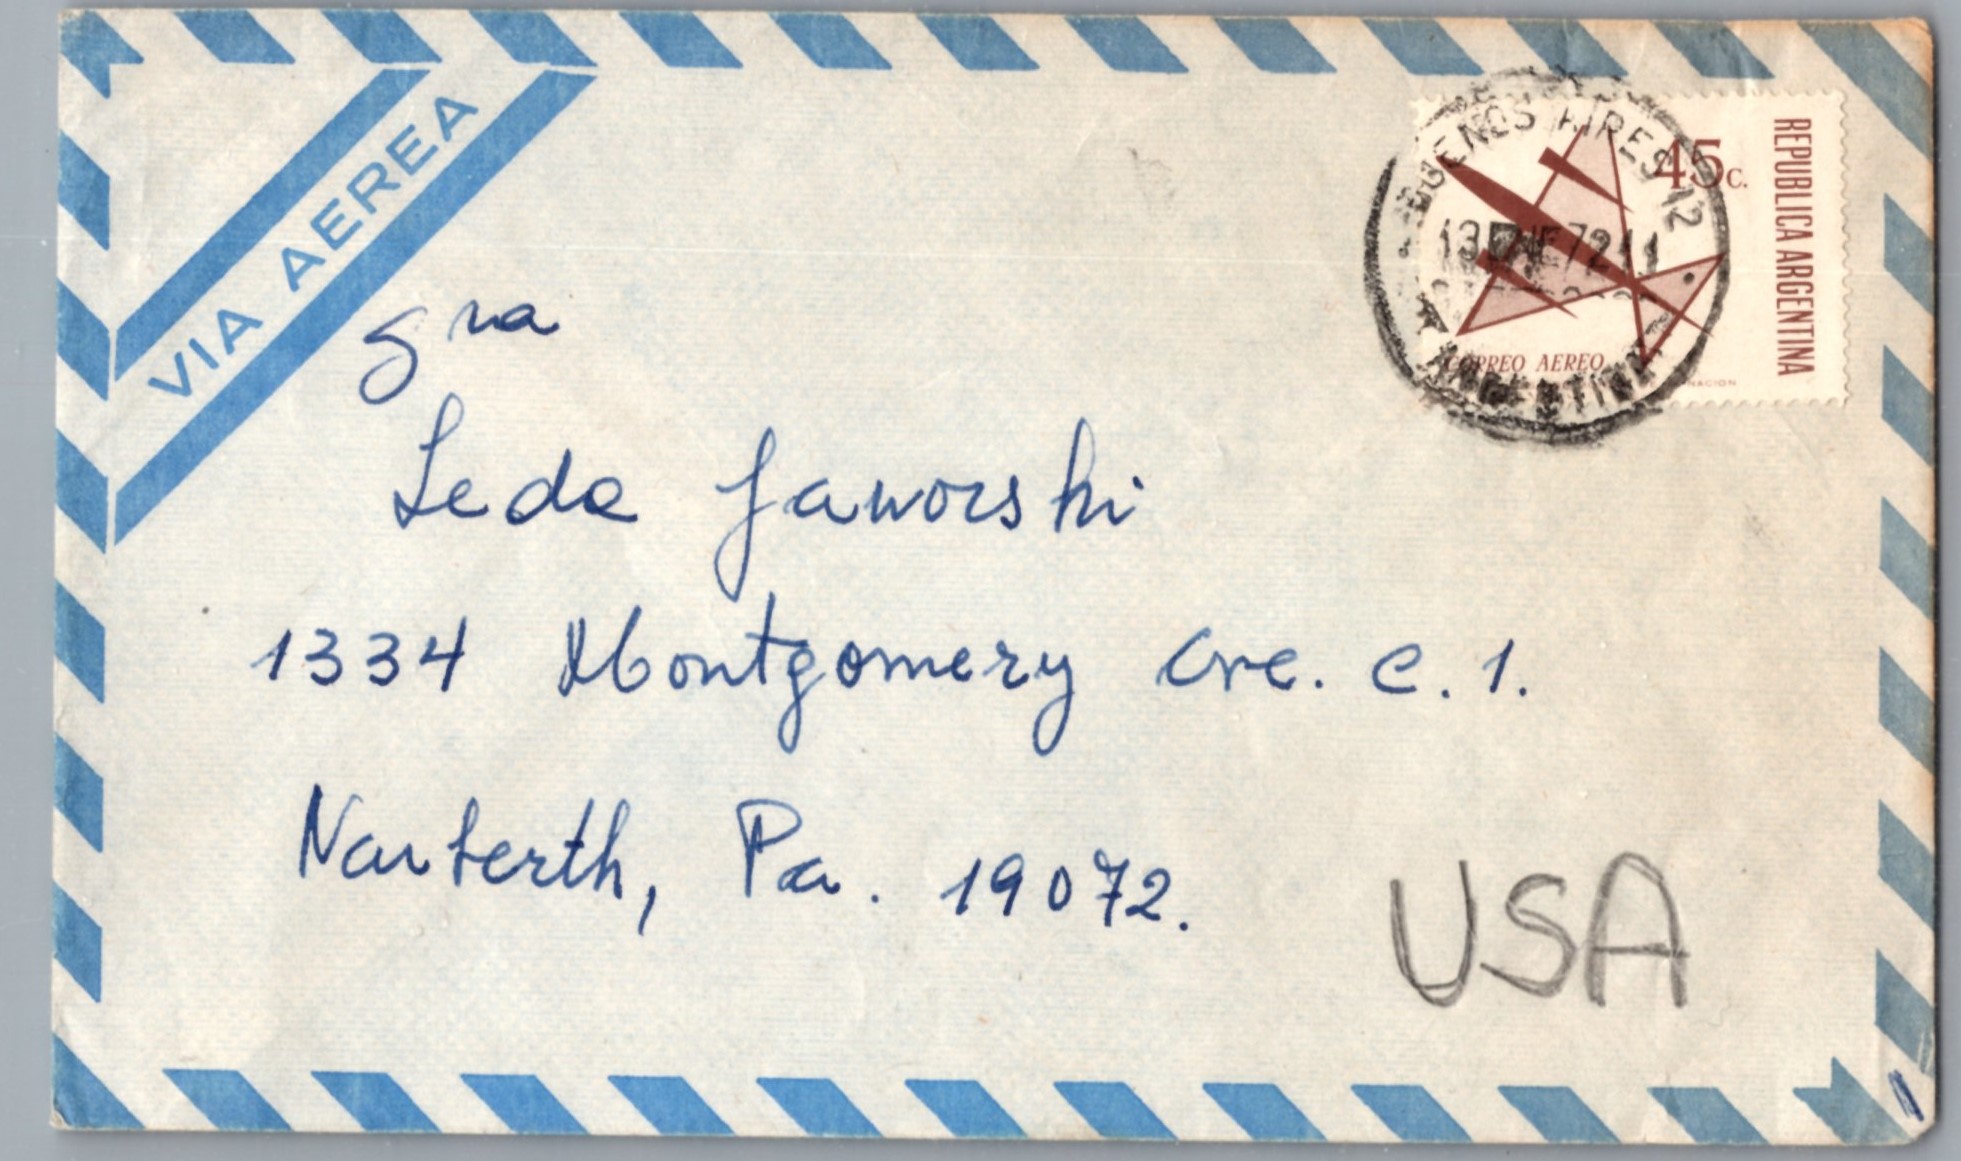 VIA AEREA
BUENOS AIRES 12
13 ENE 72 11
ARGENTINA
45c.
REPUBLICA ARGENTINA
CORREO AEREO
NACION
Sra
Leda Jaworski
1334 Montgomery Ave. C. 1.
Narberth, Pa. 19072.
USA